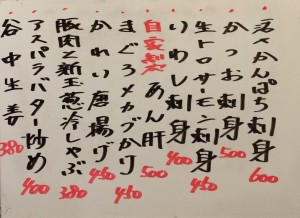 活〆かんぱち刺身 600
かつお刺身 500
生トロサーモン刺身 450
いわし刺身 400
自家製 あん肝 500
まぐろメカブかけ 450
かれい唐揚げ 450
豚肉と新玉葱冷しゃぶ 380
アスパラバター炒め 400
谷中生姜 380